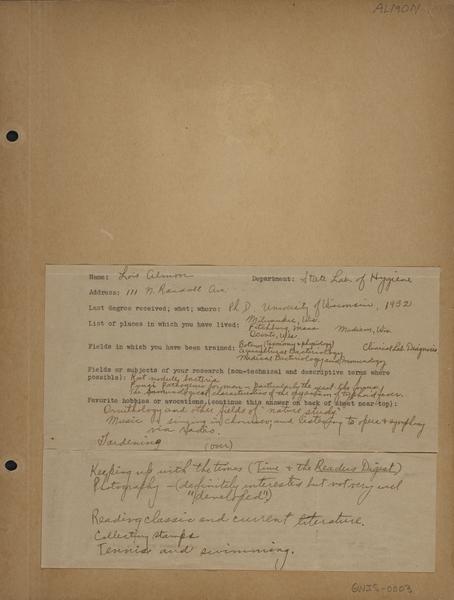 ALMON
Name: Lois Almon Department: State Lab. of Hygiene
Address: 111 N. Randall Ave
Last degree received; what; where: Ph.D. University of Wisconsin, 1932
List of places in which you have lived: Milwaukee, Wis.
Fitchburg, Mass Madison, Wis.
Oconto, Wis
Fields in which you have been trained: Botany (taxonomy & physiology)
Agricultural Bacteriology Clinical Lab. Diagnosis
Medical Bacteriology and Immunology
Fields or subjects of your research (non-technical and descriptive terms where
possible): Root nodule bacteria
Fungi pathogenic for man - particularly the
The characteristics of the organism of typhoid fever.
Favorite hobbies or avocations,(continue this answer on back of sheet near top):
Ornithology and other fields of "nature study"
Music - singing in chorus, and listening to opera & symphony
via radio.
Gardening (over)
Keeping up with the times (Time & the Readers Digest)
Photography - (definitely interested but not very well
"developed")
Reading classic and current literature.
Collecting stamps
Tennis and swimming.
GNIS-0003